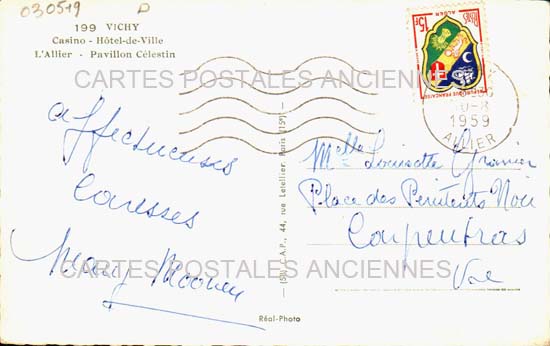 030519 D
199 VICHY
Casino - Hôtel-de-Ville
L'Allier - Pavillon Célestin
CARTES POSTALES ANCIENNES
15F
ALGER
REPUBLIQUE FRANÇAISE
1959
ALLIER
affectueuses
caresses
(S.) C.A.P., 44, rue Letellier, Paris (15e)
Melle Louisette Granier
Place des Penitents Noir
Carpentras
Vse
CARTES POSTALES ANCIENNES
Réal-Photo